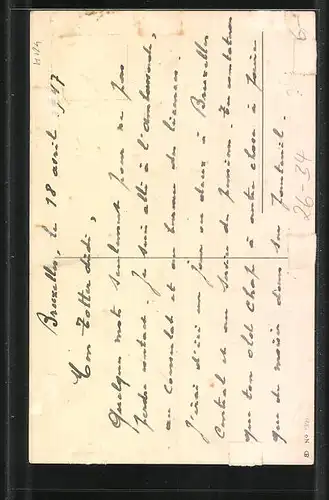 Bruxelles, le 18 avril 1947
Mon Totter dédé,
Quelques mots seulement pour ne pas
perdre contact. Je suis allé à l'ambassade,
au consulat et au bureau des licences.
J'irai d'ici un jour ou deux à Bruxelles
Central et au service de pension. Tu
que ton old chap a autre chose à faire
que de moisir dans son fauteuil.
26-34
6